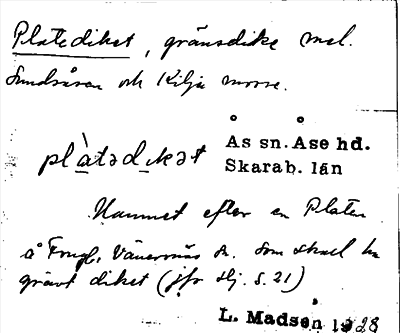 Platediket, gränsdike mel.
Sundsåsen och Kilja mosse.
plàtədɩkət
Ås sn. Åse hd.
Skarab. län
Namnet efter en Platen
å Frugb., Vänersnäs sn. som skall ha
grävt diket (jfr Hj. s. 21)
L. Madsén 1928